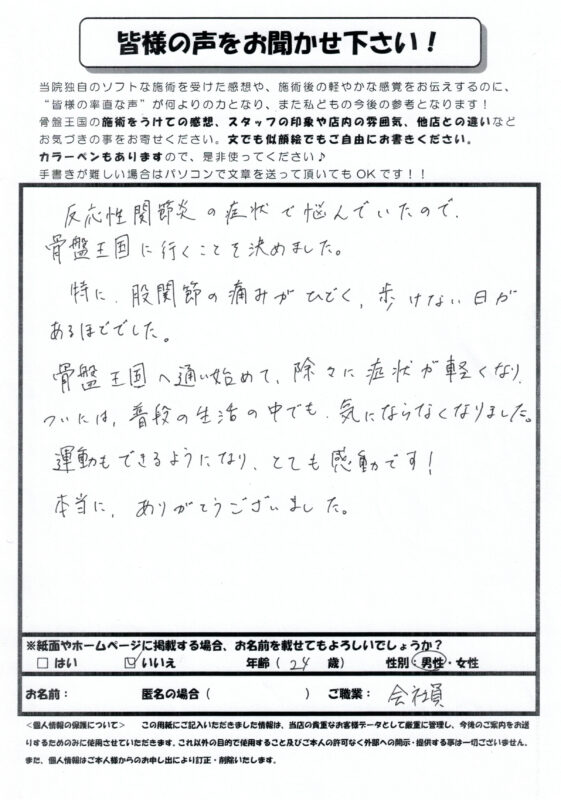 皆様の声をお聞かせ下さい！
当院独自のソフトな施術を受けた感想や、施術後の軽やかな感覚をお伝えするのに、
“皆様の率直な声”が何よりの力となり、また私どもの今後の参考となります！
骨盤王国の施術をうけての感想、スタッフの印象や店内の雰囲気、他店との違いなど
お気づきの事をお寄せください。文でも似顔絵でもご自由にお書きください。
カラーペンもありますので、是非使ってください♪
手書きが難しい場合はパソコンで文章を送って頂いてもOKです！！
反応性関節炎の症状で悩んでいたので、
骨盤王国に行くことを決めました。
特に、股関節の痛みがひどく、歩けない日が
あるほどでした。
骨盤王国へ通い始めて、除々に症状が軽くなり、
ついには、普段の生活の中でも、気にならなくなりました。
運動もできるようになり、とても感動です！
本当に、ありがとうございました。
※紙面やホームページに掲載する場合、お名前を載せてもよろしいでしょうか？
□ はい ☑ いいえ 年齢（ 24 歳） 性別：男性・女性
お名前： 匿名の場合（ ） ご職業： 会社員
<個人情報の保護について> この用紙にご記入いただきました情報は、当店の貴重なお客様データとして厳重に管理し、今後のご案内をお送
りするためのみに使用させていただきます。これ以外の目的で使用すること及びご本人の許可なく外部への開示・提供する事は一切ございません。
また、個人情報はご本人様からのお申し出により訂正・削除いたします。